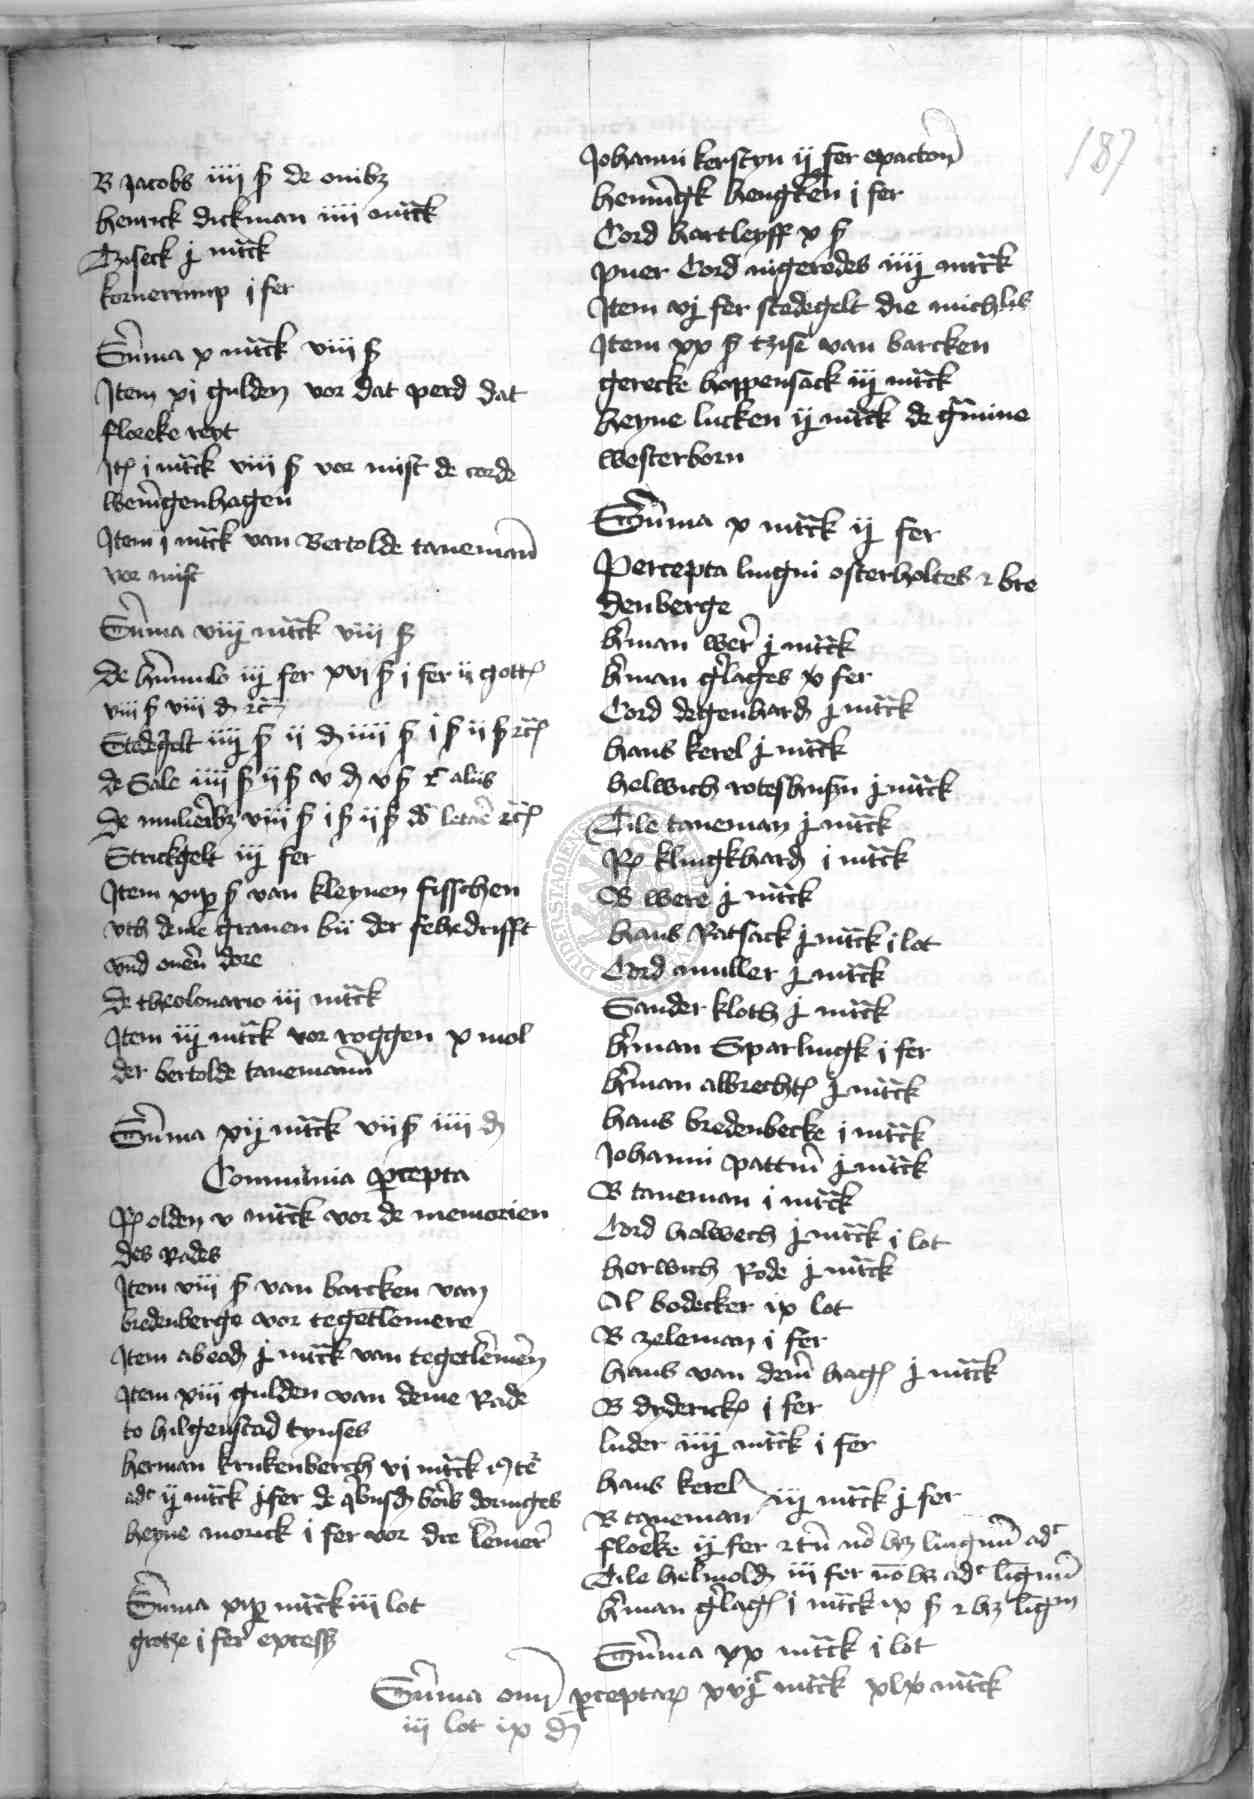 187
B Jacobs iiii ß de ouibz
henrick dickman iiii mrck
Tziseck j mrck
kornerump j fer
Summa x mrck viii ß
Item xi gulden vor dat perd dat
floreke reyt
Itē i mrck viii ß vor mist de corde
wenīgenhagen
Item i mrck van Bertolde taneman
vor mist
Summa viij mrck viii ß
de iij fer xvi ß j fer ij
viii ß viii d rc
Stedegelt iiij ß ii d iiii ß i ß ii ß rc
de Sale iiii ß ii ß v d v ß r aliis
de mulierbz viii ß i ß ii ß
Strickgelt iij fer
Item ß van kleynen fisschen
vth deme grauen bii der fehedrifft
vnd
de theolonario iii mrck
Item iij mrck vor roggen x mol
der bertolde tanemann
Summa xij mrck vii ß iiii d
Communia percepta
olden v mrck vor de memorien
des Rades
Item viii ß van barcken van
bredenberge vor tegetlemere
Item j mrck van tegetlemern
Item xiii gulden van deme Rade
to hilgenstad tynses
herman krukenberch vi mrck
adc ij mrck j fer de doringes
heyne morick i fer vor dre lemer
Summa mrck iii lot
grotze i fer excess
Johanni kerstyn ij fer
hennīgk hengken i fer
Cord hartleyff x ß
puer Cord nigerodes iiij mrck
Item vj fer stedegelt die michlis
Item xx ß tzise van barcken
gerecke hoppensack iij mrck
heyne lucken ij mrck de
westerborn
Summa x mrck ij fer
Percepta lingni osterholtes z bre
denberge
herman wer j mrck
herman gerlages x fer
Cord degenhard j mrck
hans kerel j mrck
helwich roteshusn j mrck
Tile taneman j mrck
klingkhard i mrck
B were j mrck
hans Ratsack j mrck i lot
Cord muller j mrck
Sander kloth j mrck
herman Sparlingk i fer
herman albrechtes j mrck
hans bredenbecke i mrck
Johanni j mrck
B taneman i mrck
Cord holwech j mrck i lot
herwich Rode j mrck
Al bodecker ix lot
B zeleman i fer
hans van dem hagē j mrck
B dyderickes i fer
luder iiij mrck i fer
hans kerel
B taneman iij mrck j fer
floreke ij fer lingnum adc
Tile helmold iii fer adc lignum
herman gerlages i mrck ix ß z lignum
Summa xx mrck i lot
Summa omnium perceptarum mrck xlv mrck
iij lot ix d